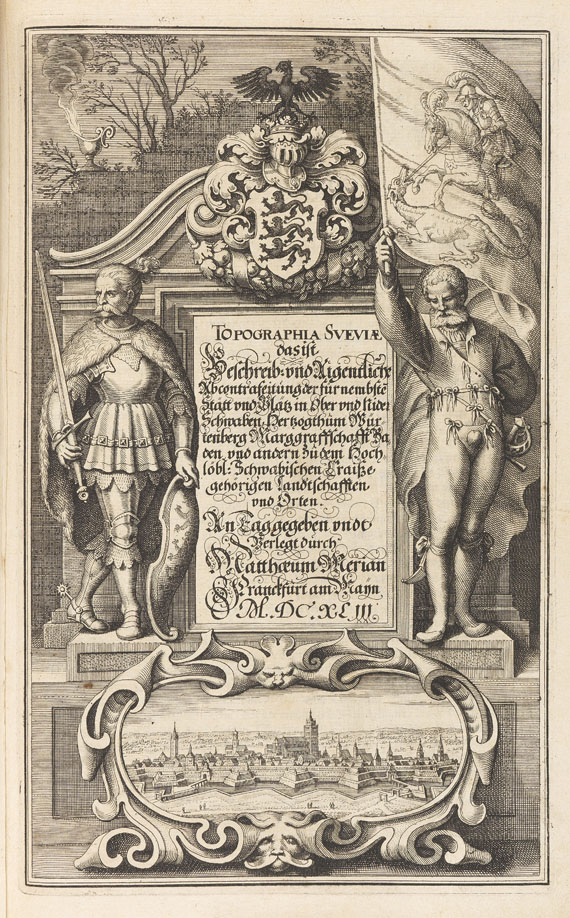 TOPOGRAPHIA SVEVIÆ
das ist
Beschreib: vnd Aigentliche
Abcontrafeitung der fürnembstē
Stätt vnd Plätz in Ober vnd Nider
Schwaben, Hertzogthum Wür-
tenberg Marggraffschafft Ba-
den, vnd andern zu dem Hoch
löbl: Schwabischen Craiße
gehörigen Landtschafften
vnd Orten.
An Tag gegeben vndt
Verlegt durch
Matthæum Merian
Franckfurt am Mayn
M.DC.XLIII